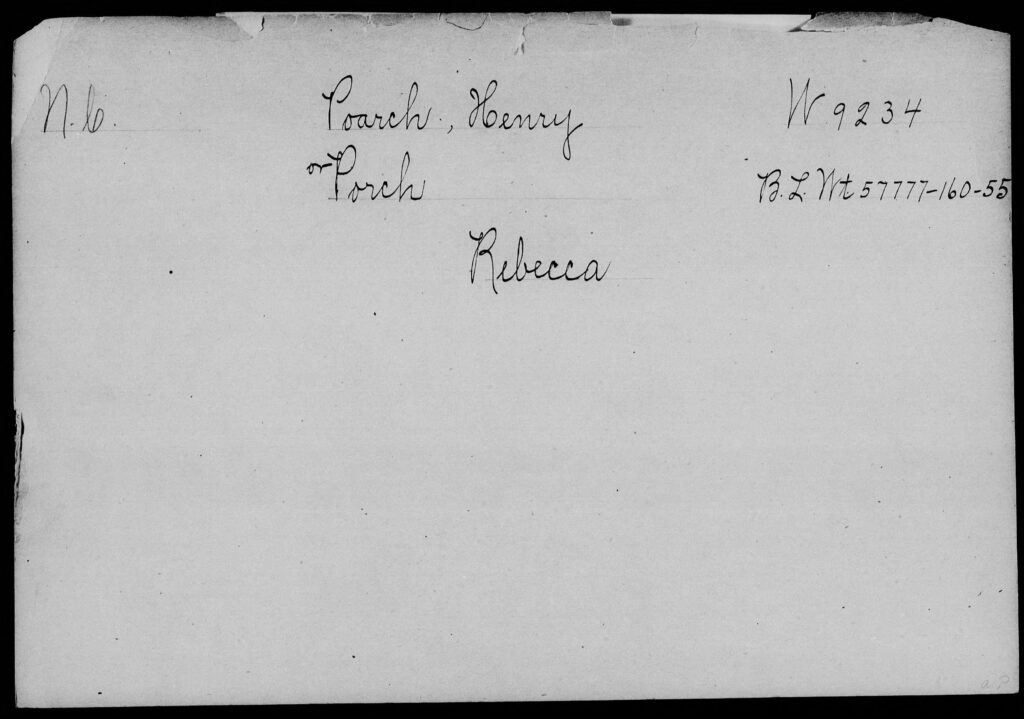 N.C. Poarch, Henry W 9234
or Porch B.L.Wt 57777-160-55
Rebecca